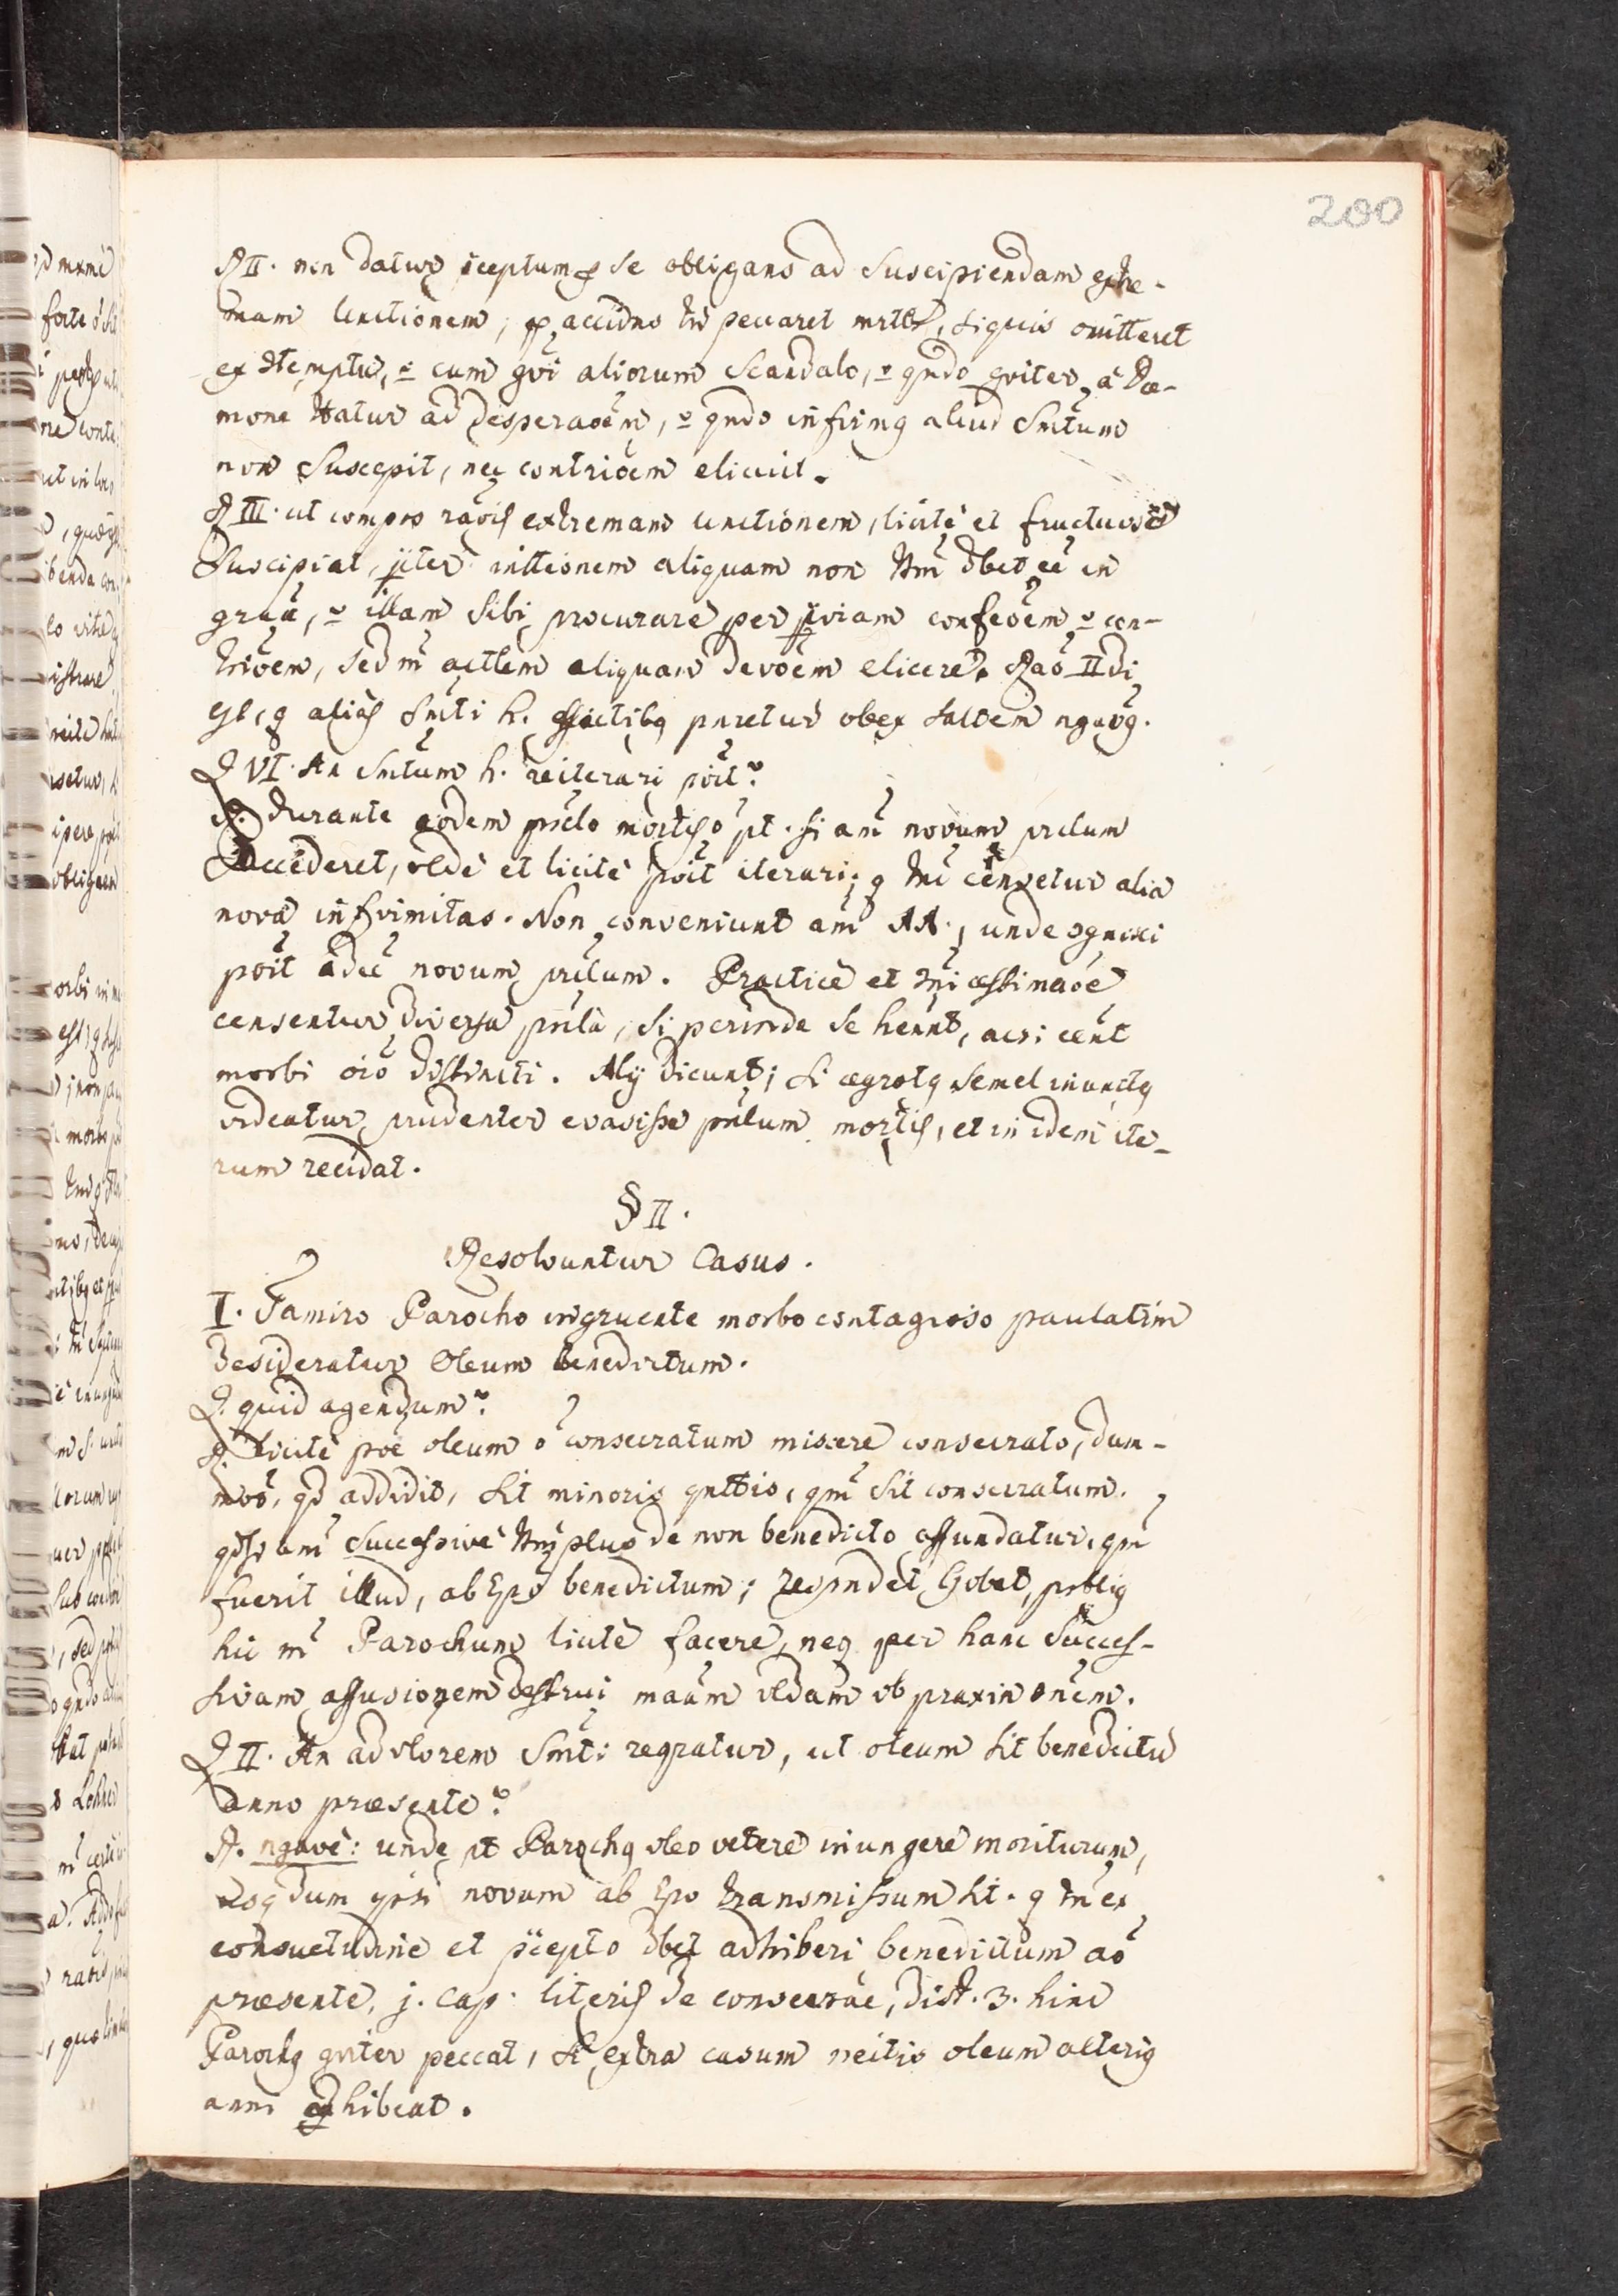 200
R II. non datur ꝑceptum per se obligans ad suscipiendam extre-
mam unctionem; per accidns tn̄ peccaret mrtlr, siquis omitteret
ex ctemptu, v cum gvi aliorum scandalo, v qndo gviter a dæ-
mone ttatur ad desperaoēm, v qndo infirmq aliud Smtum
non suscepit, nec contrioēm elicuit.
R III. ut compos raōis extremam unctionem, licitè et fructuosè
suscipiat, pter inttionem aliquam non tm̄ dbet eē in
grūa, v illam sibi procurare per pviam confeoēm v con-
trioēm, sed m̄ actlem aliquam devoēm elicere. Rāo II di
est, q aliàs Smti h. effectibq pneretur obex saltem ngavq.
Q VI. An Smtum h. reiterari poit?
R. durante eodem priclo mortis ō pt. si am̄ novum priclum
accederet, vldè et licitè poit iterari; q tnc censetur alia
nova infirmitas. Non conveniunt am̄ AA., unde cgnosci
poit adee novum priclum. Practicè et mri æstimaōe
censentur diversa pricla, si perinde se hennt, acsi eent
morbi oīo distincti. Alij dicunt; si ægrotq semel inunctq
videatur prudenter evasisse priclum mortis, et in idem ite-
rum recidat.
§ II.
Resolvuntur Casus.
I. Famiro Parocho ingruente morbo contagioso paulatim
desideratur Oleum benedictum.
Q. quid agendum?
R. licitè poe oleum ō consecratum miscere consecrato, dum-
mō, qd addidit, sit minoris qnttis, qm̄ sit consecratum.
qdsi am̄ successivè tm̄ plus de non benedicto affundatur, qm̄
fuerit illud, ab Epo benedictum; respndet Gobat, prbliq
hic m̄ Parochum licitè facere, neq per hanc succes-
sivam affusionem destrui maām vldam ob praxin onēm.
Q II. An ad vlorem Smti reqratur, ut oleum sit benedictū
anno præsente?
R. ngavè: unde pt Parochq oleo vetere inungere moriturum,
dum ipsi novum ab Epo transmissum sit. q tn̄ ex
consuetudine et pcepto dbet adhiberi benedictum aō
præsente, j. cap. literis de consecrāe, dist. 3. hinc
Parochq gviter peccat, si extra casum neitis oleum alteriq
anni adhibeat.